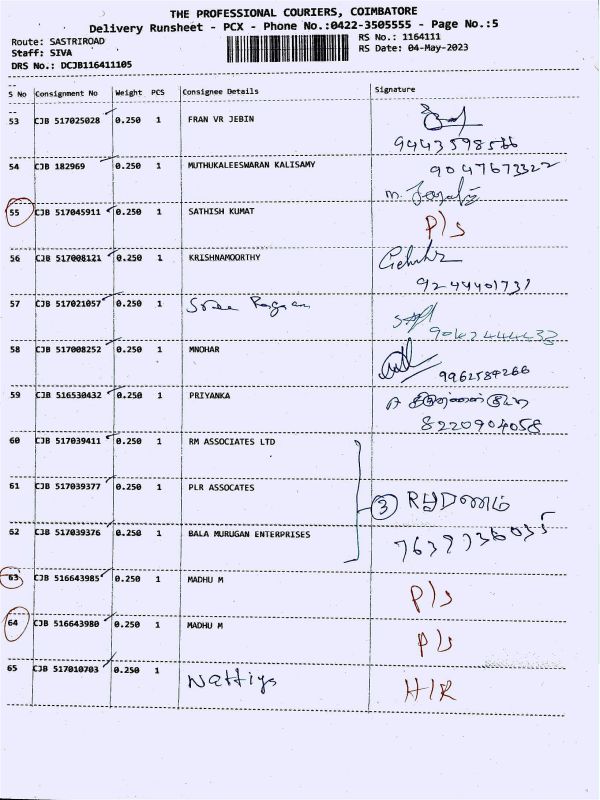 THE PROFESSIONAL COURIERS, COIMBATORE
Delivery Runsheet - PCX - Phone No.:0422-3505555 - Page No.:5
Route: SASTRIROAD
Staff: SIVA
DRS No.: DCJB116411105
RS No.: 1164111
RS Date: 04-May-2023
S No Consignment No Weight PCS Consignee Details Signature
53 CJB 517025028 0.250 1 FRAN VR JEBIN
9443598566
54 CJB 182969 0.250 1 MUTHUKALEESWARAN KALISAMY 9047673322
55 CJB 517045911 0.250 1 SATHISH KUMAT P/s
56 CJB 517008121 0.250 1 KRISHNAMOORTHY
9244401731
57 CJB 517021057 0.250 1 Sree
9042444433
58 CJB 517008252 0.250 1 MNOHAR
9962584266
59 CJB 516530432 0.250 1 PRIYANKA
8220904058
60 CJB 517039411 0.250 1 RM ASSOCIATES LTD
61 CJB 517039377 0.250 1 PLR ASSOCATES
3
62 CJB 517039376 0.250 1 BALA MURUGAN ENTERPRISES
7639736035
63 CJB 516643985 0.250 1 MADHU M P/s
64 CJB 516643980 0.250 1 MADHU M P/s
65 CJB 517010703 0.250 1 Nattiya H/R